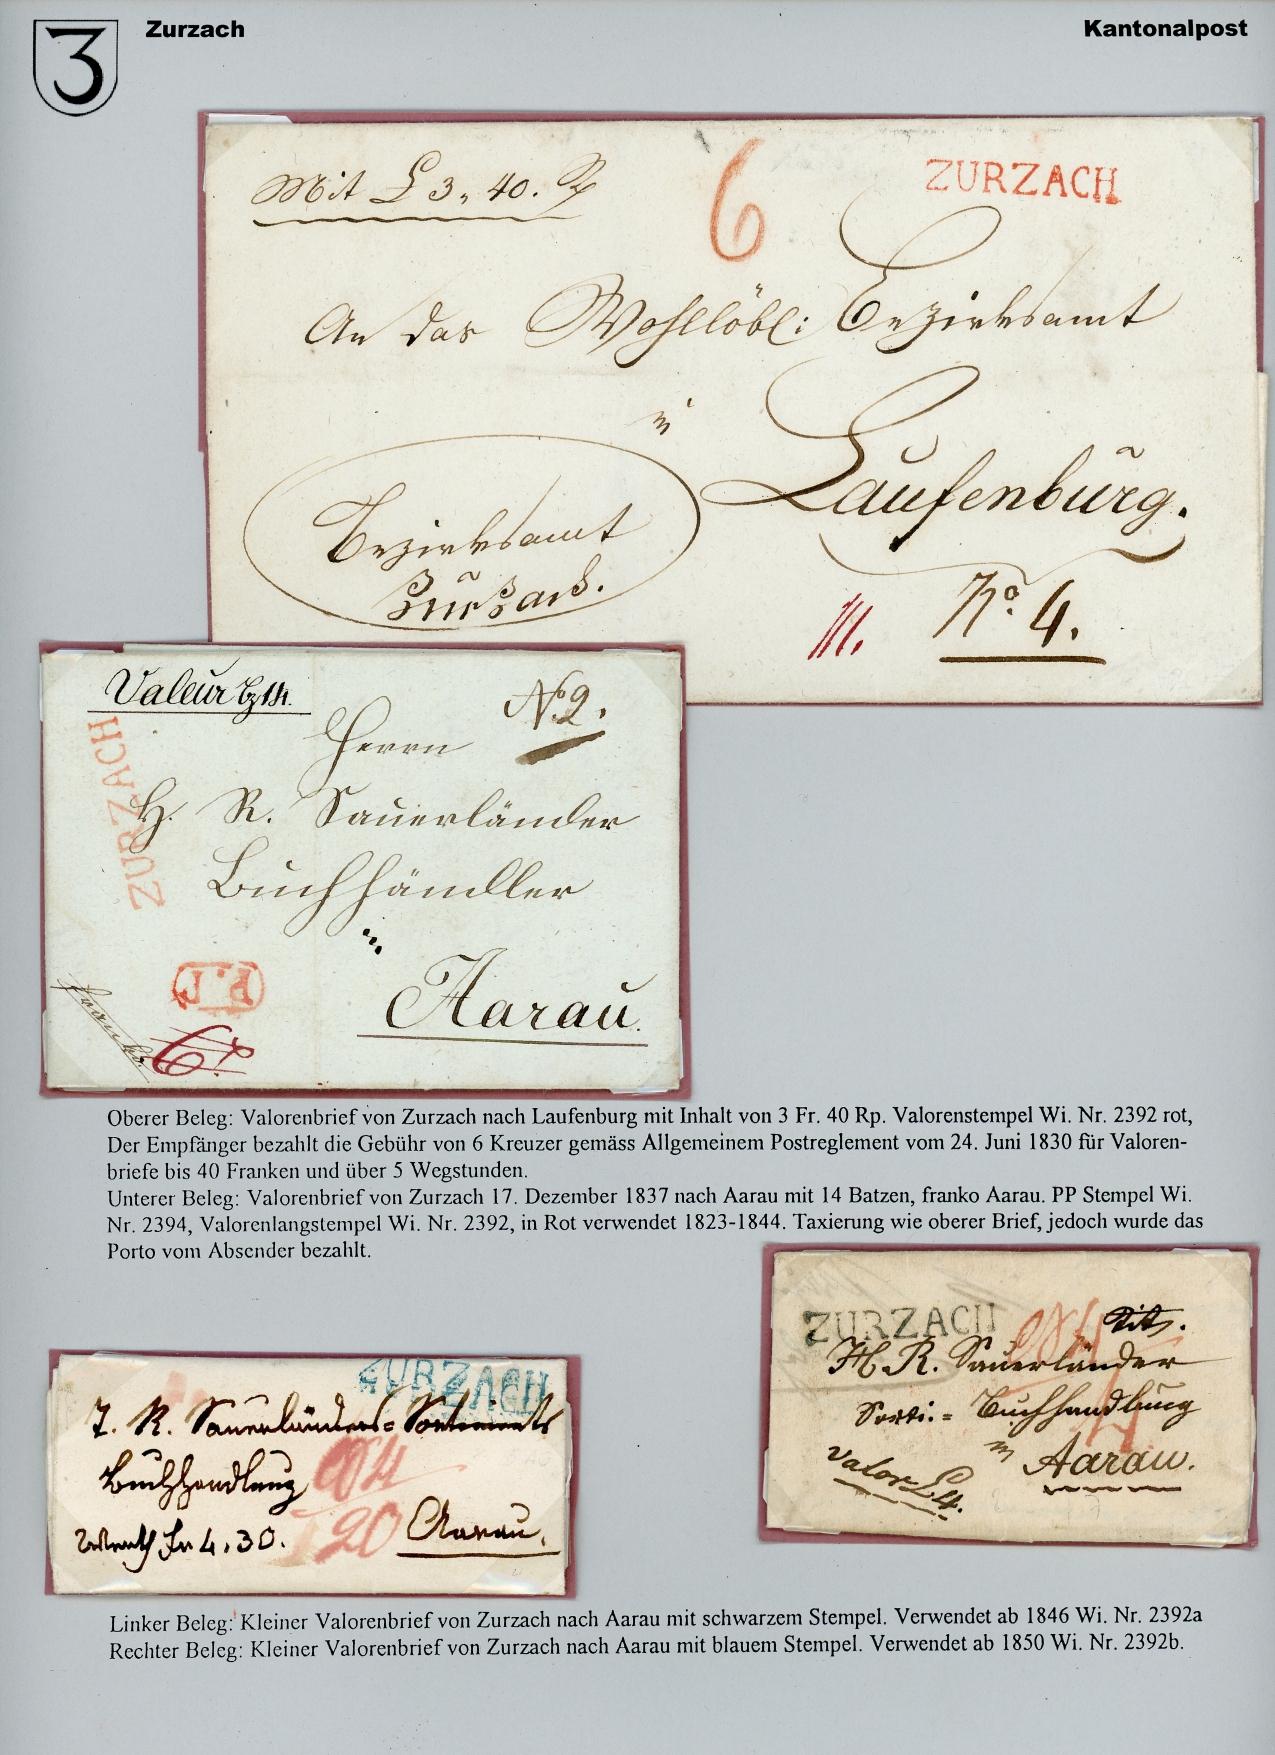 3 Zurzach Kantonalpost
Mit £ 3„ 40. Rp
6
ZURZACH
An das Wohllöbl: Bezirksamt
in
Laufenburg.
Bezirksamt
Zurzach.
No. 4.
Valeur bz 14.
No. 2.
ZURZACH
Herrn
H. R. Sauerländer
Buchhändler
in
Aarau.
P.P.
franko.
6
Oberer Beleg: Valorenbrief von Zurzach nach Laufenburg mit Inhalt von 3 Fr. 40 Rp. Valorenstempel Wi. Nr. 2392 rot,
Der Empfänger bezahlt die Gebühr von 6 Kreuzer gemäss Allgemeinem Postreglement vom 24. Juni 1830 für Valoren-
briefe bis 40 Franken und über 5 Wegstunden.
Unterer Beleg: Valorenbrief von Zurzach 17. Dezember 1837 nach Aarau mit 14 Batzen, franko Aarau. PP Stempel Wi.
Nr. 2394, Valorenlangstempel Wi. Nr. 2392, in Rot verwendet 1823-1844. Taxierung wie oberer Brief, jedoch wurde das
Porto vom Absender bezahlt.
ZURZACH
Tit.
H. R. Sauerländer
Sorti.= Buchhandlung
in Aarau.
Valor £ 4.
ZURZACH
J. R. Sauerländers= Sortiments
Buchhandlung
20
Fr 4. 30. Aarau.
Linker Beleg: Kleiner Valorenbrief von Zurzach nach Aarau mit schwarzem Stempel. Verwendet ab 1846 Wi. Nr. 2392a
Rechter Beleg: Kleiner Valorenbrief von Zurzach nach Aarau mit blauem Stempel. Verwendet ab 1850 Wi. Nr. 2392b.